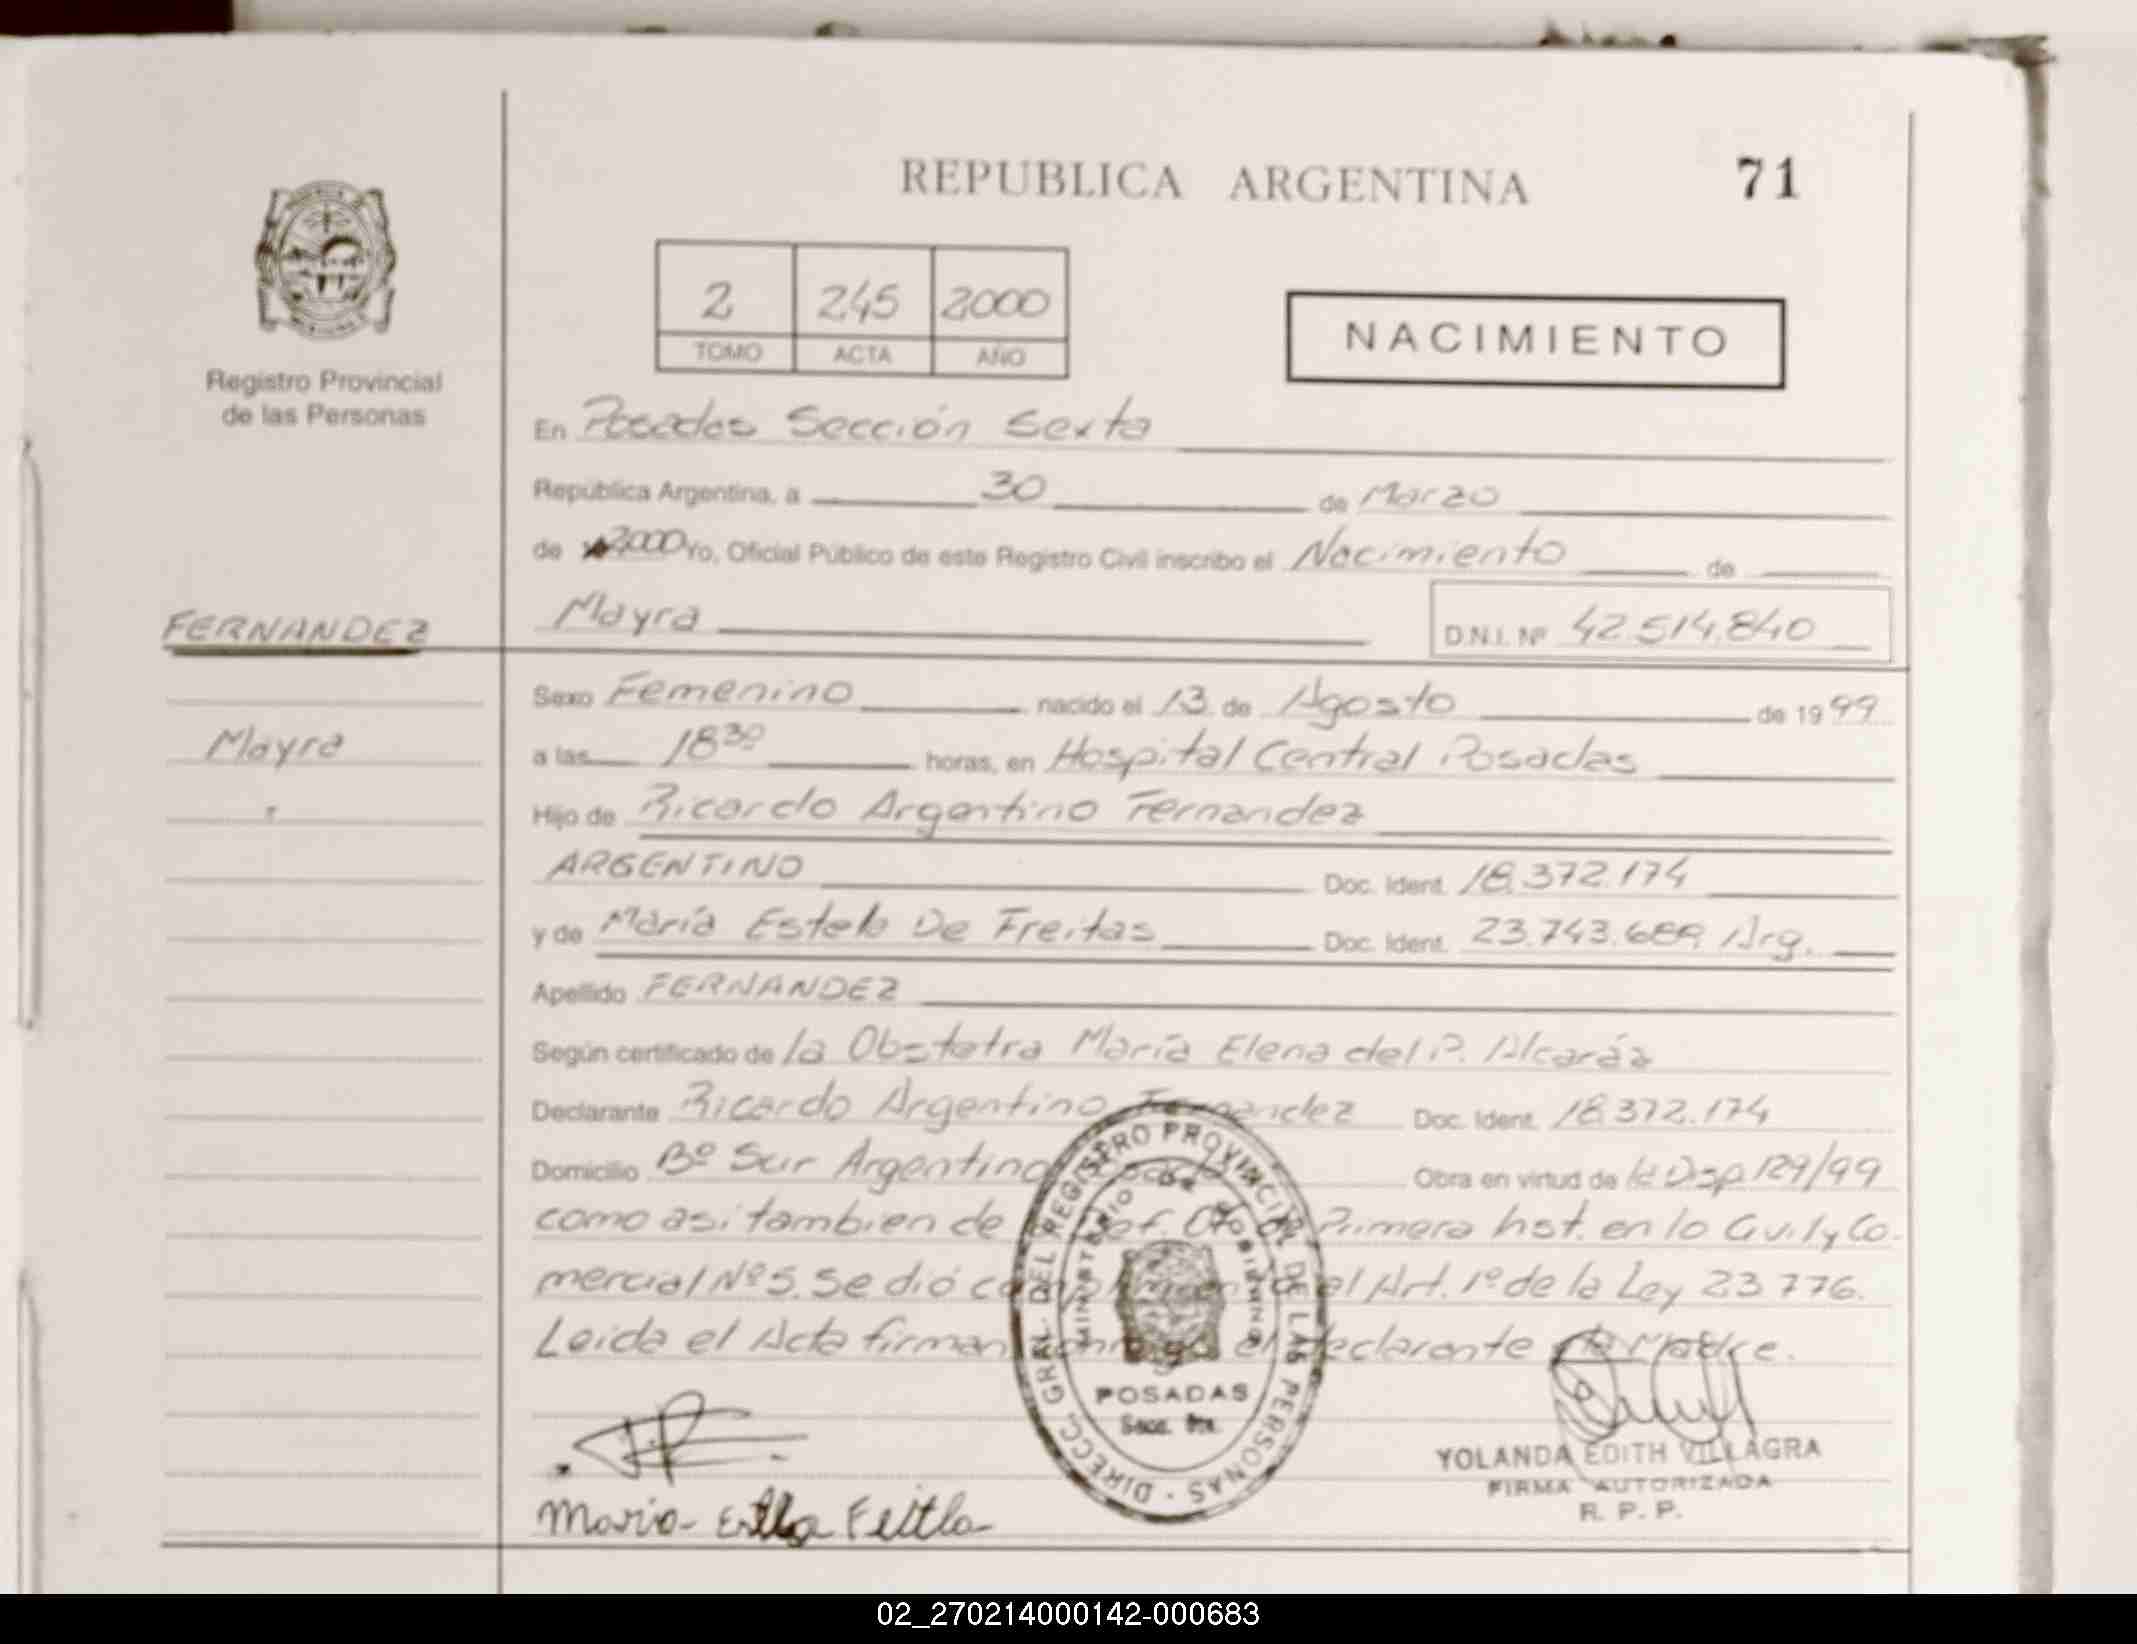 REPUBLICA ARGENTINA
71
2 245 2000
TOMO ACTA AÑO
NACIMIENTO
Registro Provincial
de las Personas
En Posadas Sección Sexta
República Argentina, a 30 de Marzo
de 2000 Yo, Oficial Público de este Registro Civil inscribo el Nacimiento de
FERNANDEZ
Mayra
D.N.I. Nº 42.514.840
Sexo Femenino nacido el 13 de Agosto de 1999
Mayra
a las 18³⁰ horas, en Hospital Central Posadas
Hijo de Ricardo Argentino Fernandez
ARGENTINO Doc. Ident. 18.372.174
y de María Estela De Freitas Doc. Ident. 23.743.689 Arg.
Apellido FERNANDEZ
Según certificado de la Obstetra María Elena del P. Alcaráz
Declarante Ricardo Argentino Fernandez Doc. Ident. 18.372.174
Domicilio Bº Sur Argentino Obra en virtud de la Disp. 129/99
como asi tambien de Primera Inst. en lo Civil y Co-
mercial Nº 5. Se dió el Art. 1º de la Ley 23776.
Leida el Acta firman el declarante y la Madre.
DIRECC. GRAL. DEL REGISTRO PROVINCIAL DE LAS PERSONAS
MINISTERIO DE GOBIERNO
POSADAS
Secc.
YOLANDA EDITH VILLAGRA
FIRMA AUTORIZADA
R. P. P.
Maria
02_270214000142-000683